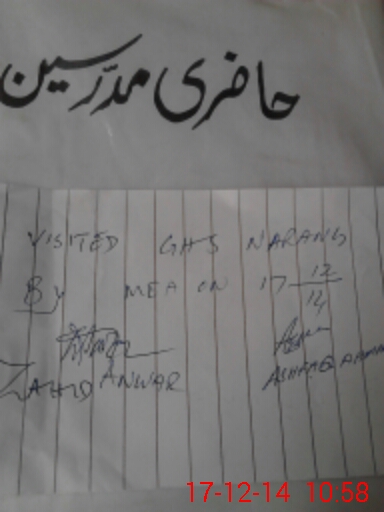 حاضری مدرسین
VISITED GHS NARANG
By MEA ON 17 12/14
ZAHID ANWAR
17-12-14 10:58